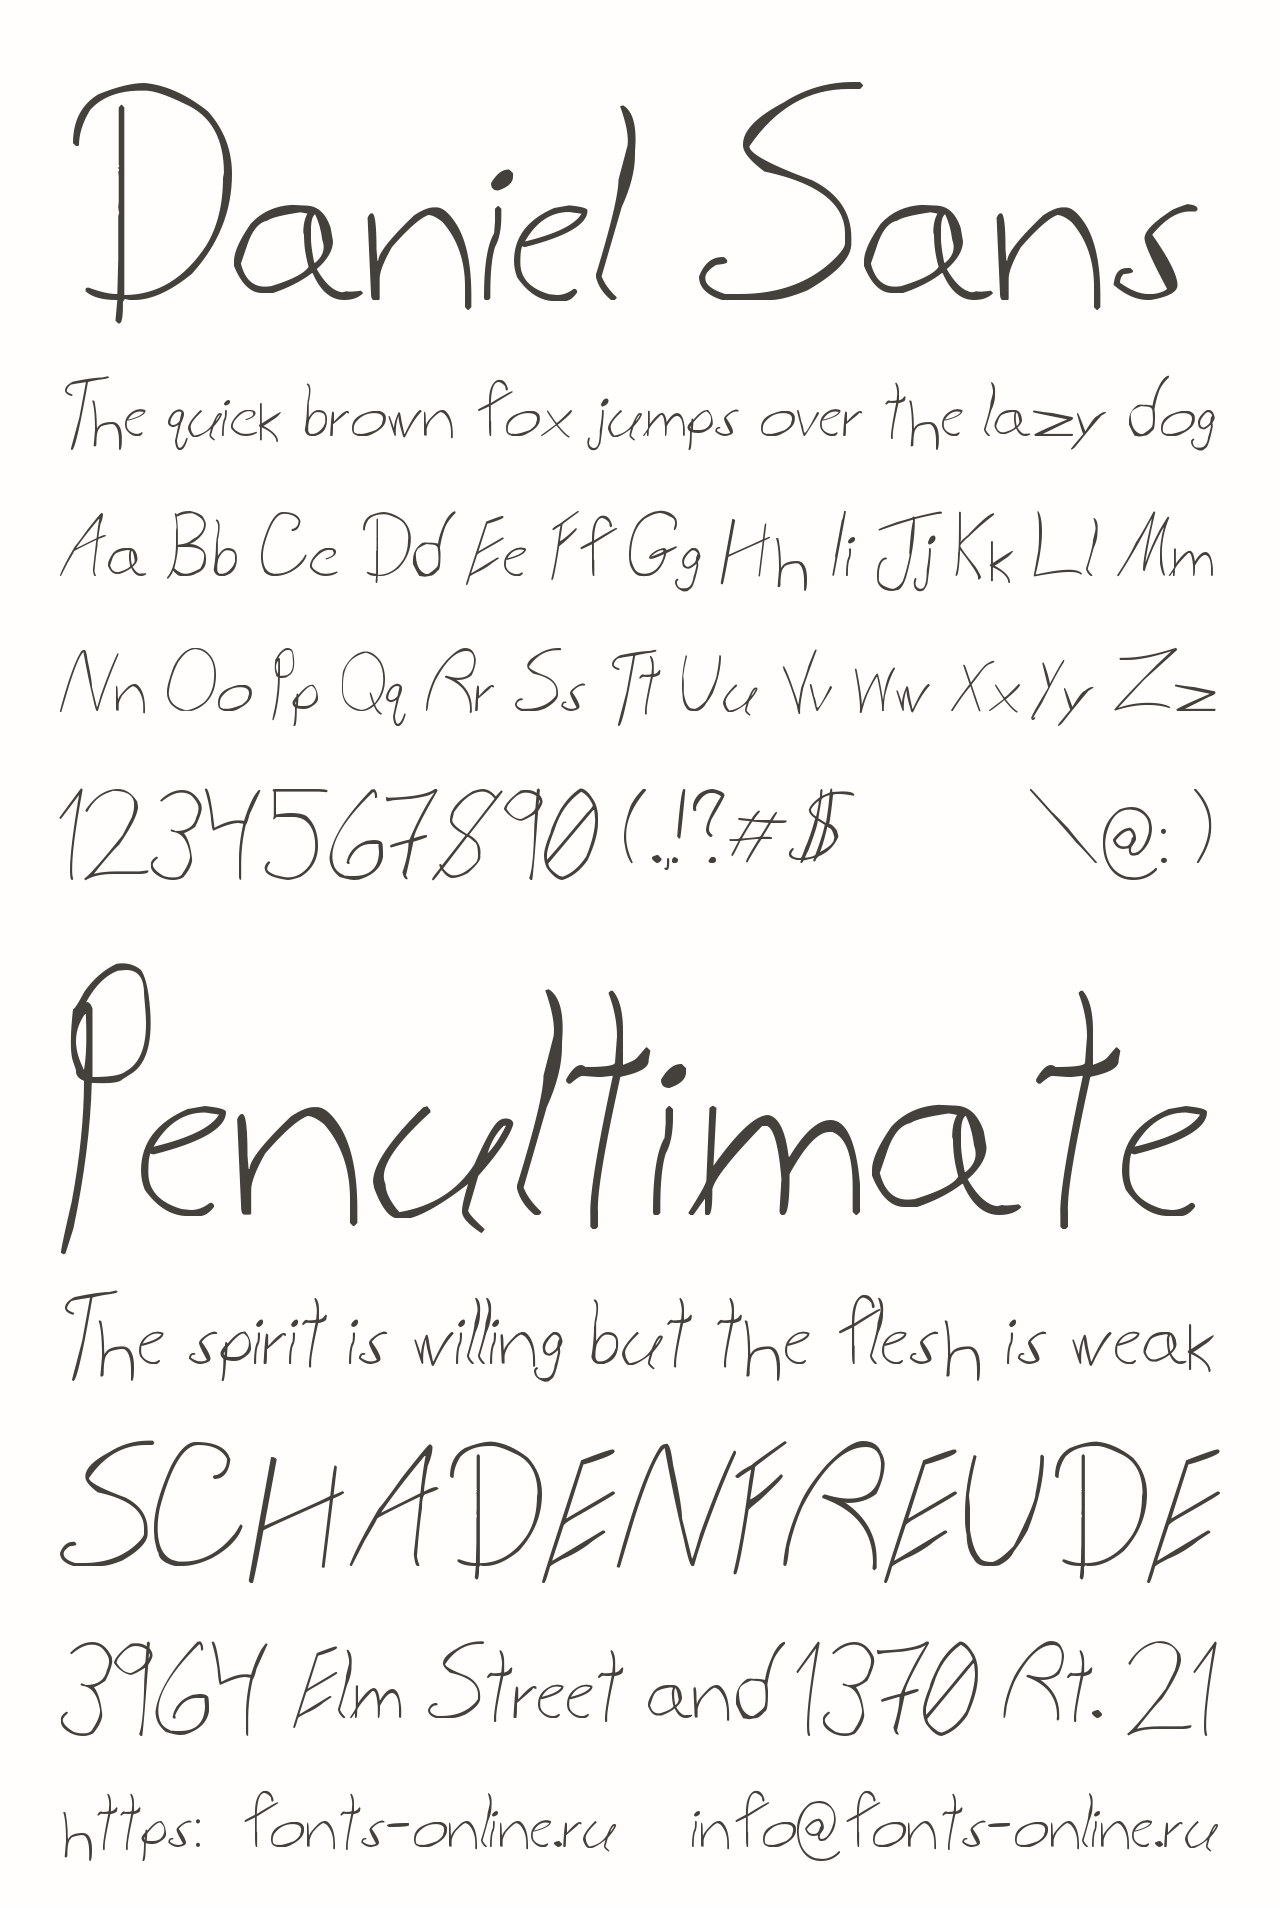 Daniel Sans
The quick brown fox jumps over the lazy dog
Aa Bb Cc Dd Ee Ff Gg Hh Ii Jj Kk Ll Mm
Nn Oo Pp Qq Rr Ss Tt Uu Vv Ww Xx Yy Zz
1234567890 (.,!? #$ \@: )
Penultimate
The spirit is willing but the flesh is weak
SCHADENFREUDE
3964 Elm Street and 1370 Rt. 21
https: fonts-online.ru info@fonts-online.ru